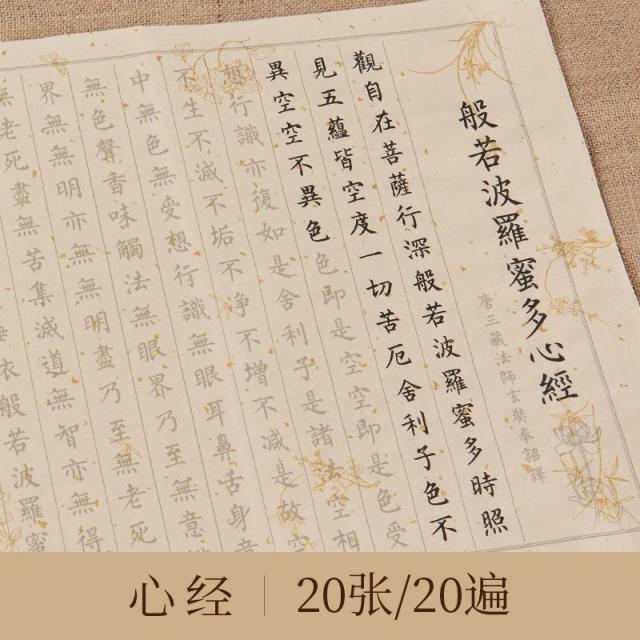 般若波羅蜜多心經
唐三藏法師玄奘奉詔譯
觀自在菩薩行深般若波羅蜜多時照
見五蘊皆空度一切苦厄舍利子色不
異空空不異色色即是空空即是色受
想行識亦復如是舍利子是諸法空相
不生不滅不垢不净不增不减是故空
中無色無受想行識無眼耳鼻舌身意
無色聲香味觸法無眼界乃至無意
界無無明亦無無明盡乃至無老死
無老死盡無苦集滅道無智亦無得
依般若波羅蜜
心经 20张/20遍